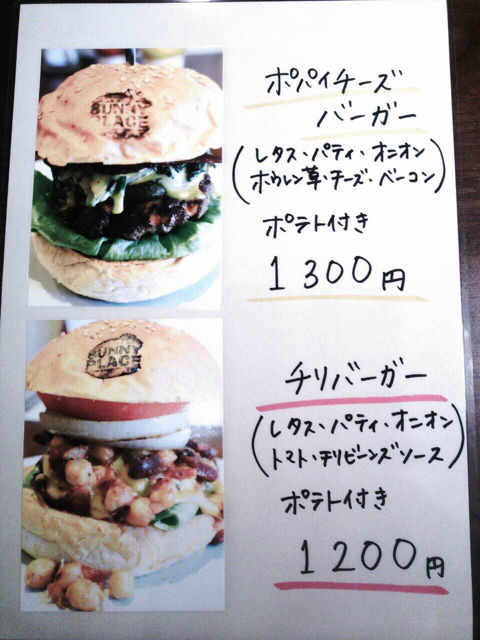 SUNNY
PLACE
ポパイチーズ
バーガー
(レタス・パティ・オニオン
ホウレン草・チーズ・ベーコン)
ポテト付き
1300円
SUNNY
PLACE
チリバーガー
(レタス・パティ・オニオン
トマト・チリビーンズソース)
ポテト付き
1200円